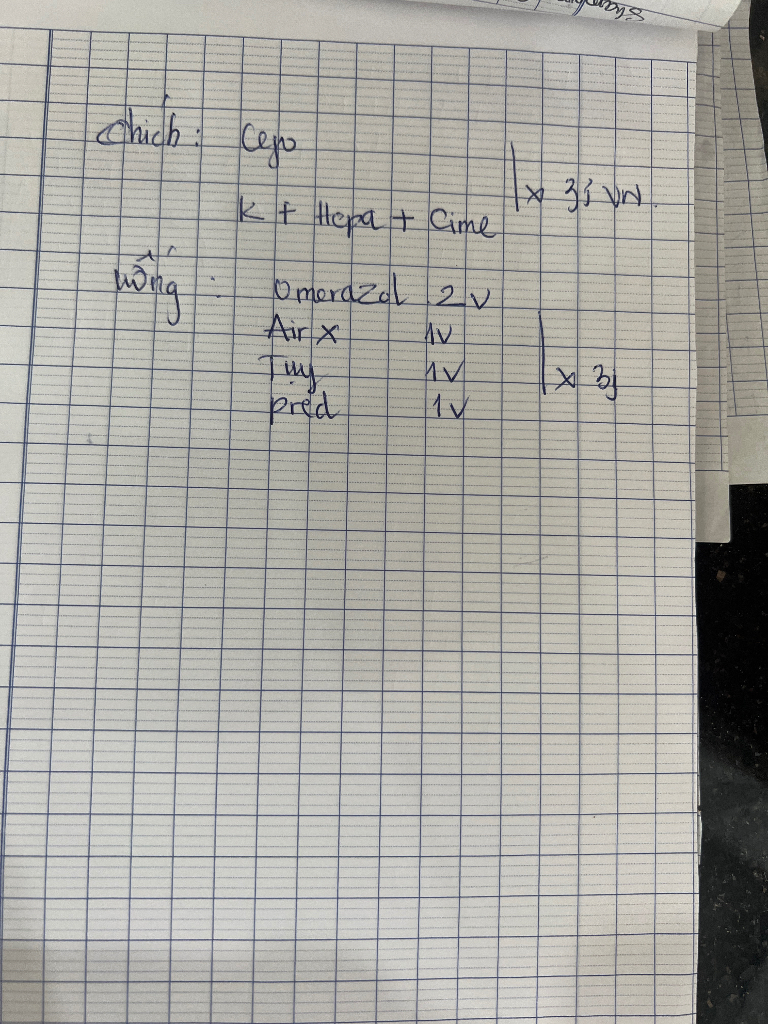 Chích: Cefo
K + Hepa + Cime | x 3j VN.
Uống: Omerazol 2v
Air X 1v
Tụy 1v | x 3j
pred 1v